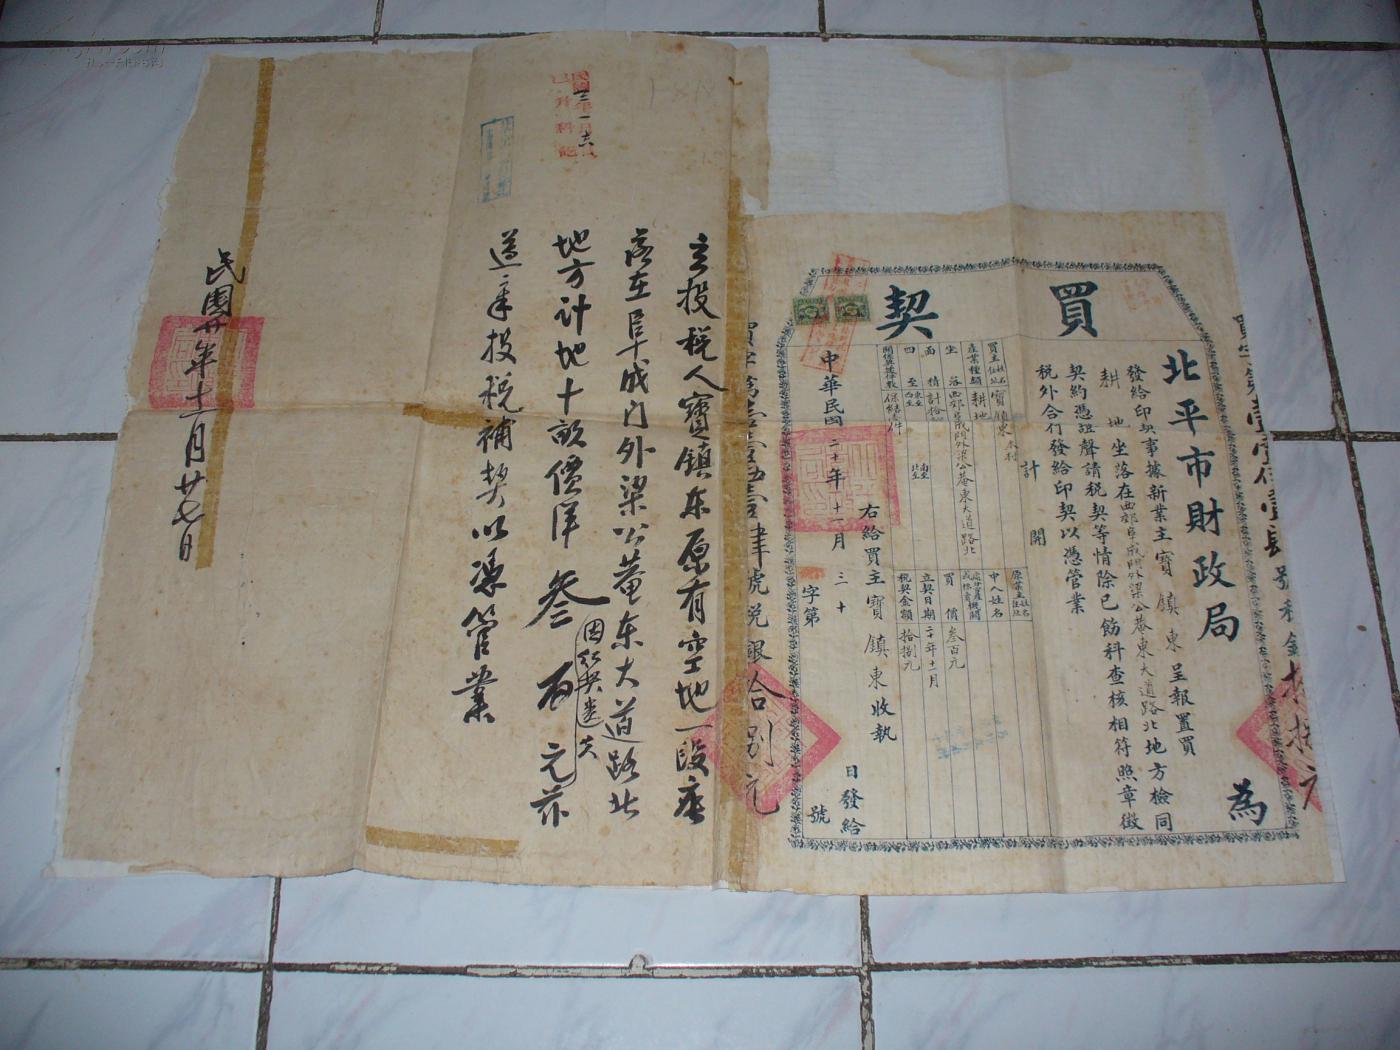 買契
北平市財政局
為
發給印契事據新業主寶鎮東呈報置買
耕地坐落在西郊阜成門外梁公菴東大道路北地方檢同
契約憑證聲請稅契等情除已飭科查核相符照章徵
稅外合行發給印契以憑管業
計開
買主姓名住址 寶鎮東 本村
產業種類 耕地
坐落 西郊阜成門外梁公菴東大道路北
面積 計拾
四至 東至 西至 南至 北至
原業主姓名住址
中人姓名
買價 叁百元
立契日期 二十年十一月
稅契金額 拾捌元
右給買主寶鎮東收執
中華民國二十年十一月三十日發給
字第 號
號稅銀拾捌元
立投稅人寶鎮东原有空地一段座
落在阜成门外梁公菴东大道路北
地方計地十畝價洋叁百元 因红契遺失 茲
遵章投税補契以憑管業
民國廿年十一月廿七日